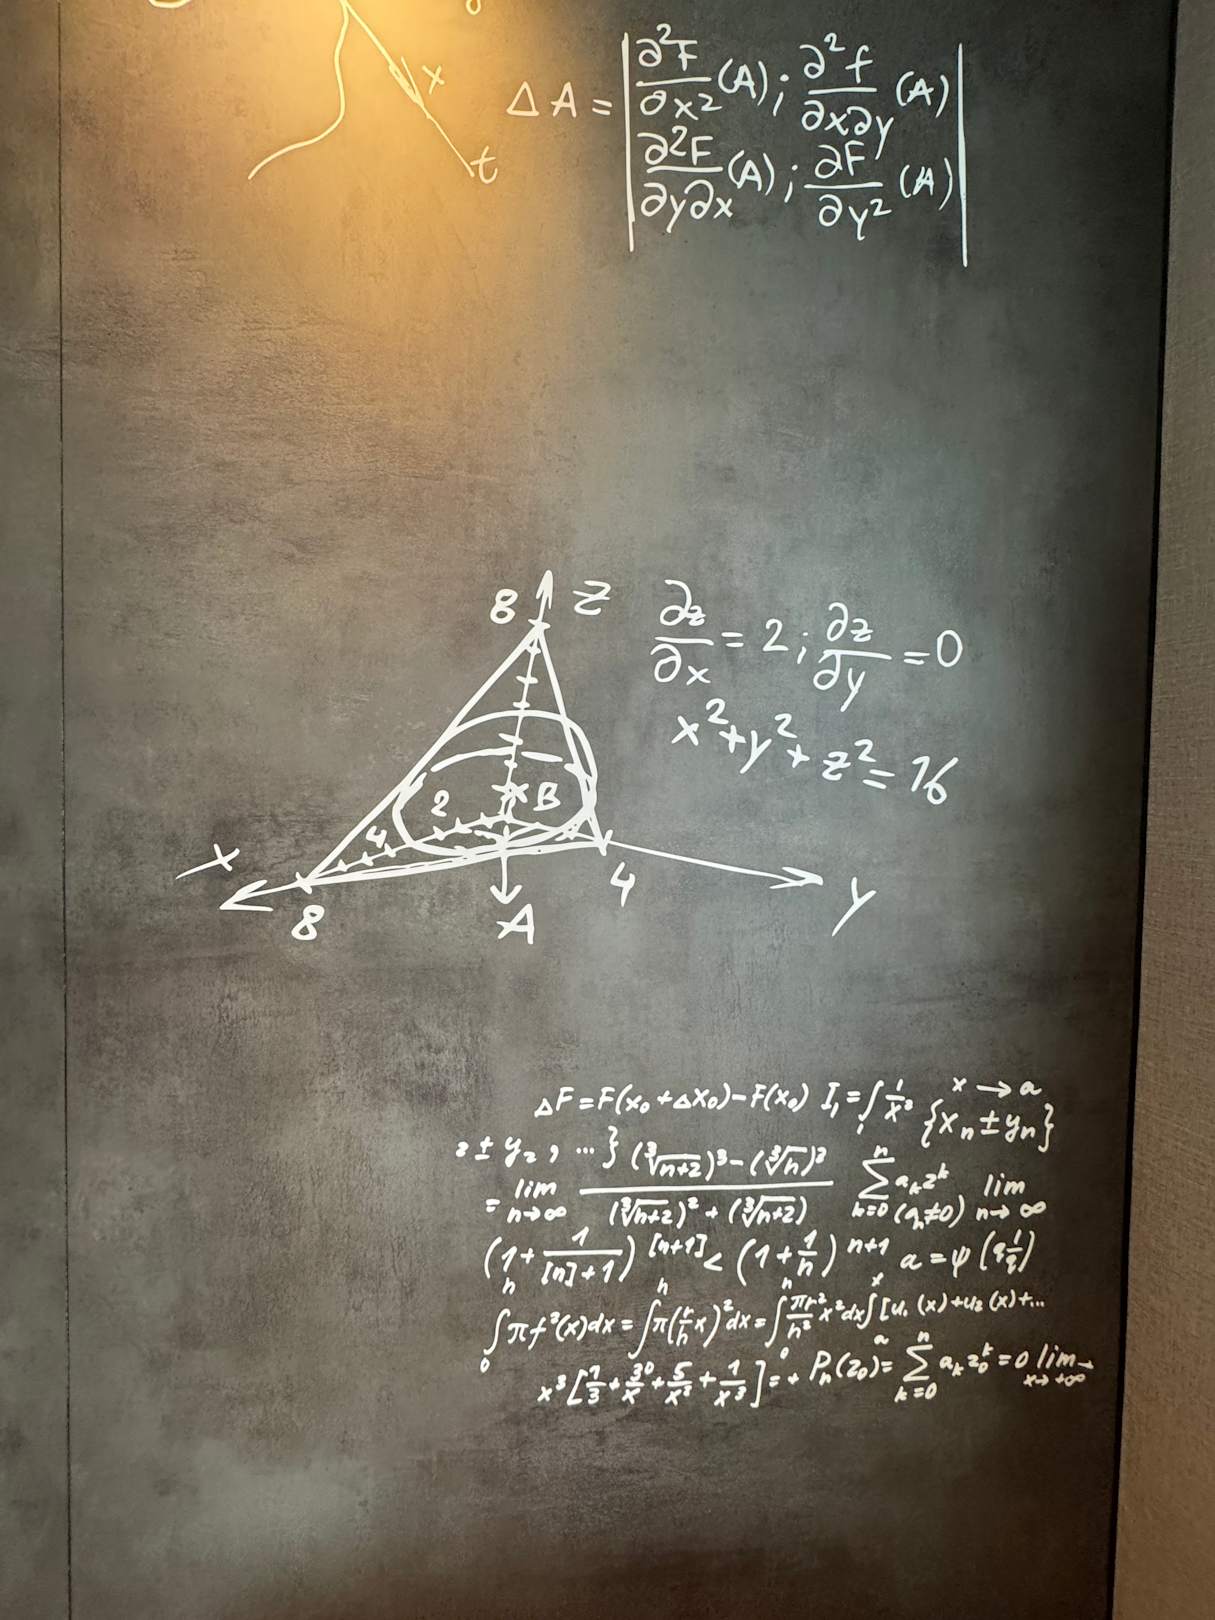 x
t
ΔA = | ∂²F/∂x² (A) ; ∂²f/∂x∂y (A) |
| ∂²F/∂y∂x (A) ; ∂F/∂y² (A) |
8 Z
∂z/∂x = 2 ; ∂z/∂y = 0
x² + y² + z² = 16
2 B
4
x
8 A 4 y
ΔF = F(x₀ + Δx₀) − F(x₀) I₁ = ∫ 1/x³ x → a
{xₙ ± yₙ}
± y₂ , ... } (∛(n+2))³ − (∛n)³
= lim n→∞ (∛(n+2))² + (∛(n+2)) ∑ k=0 n aₖzᵏ (aₙ≠0) lim n→∞
(1 + 1/([n]+1))^[n+1] < (1 + 1/n)^n+1 a = ψ
∫₀ πf²(x)dx = ∫ π(r/h x)²dx = ∫₀ πr²/h² x²dx ∫ₐˣ [u₁(x) + u₂(x) + ...
x³ [1/3 + 3⁰/x + 5/x² + 1/x³] = + Pₙ(z₀) = ∑ k=0 n aₖz₀ᵏ = 0 lim x→+∞